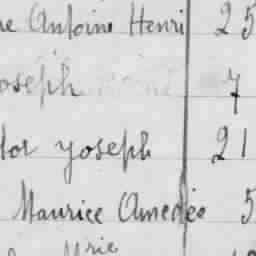 ne Antoine Henri 25
oseph 7
tor yoseph 21
Maurice Amedée 5
Mrie